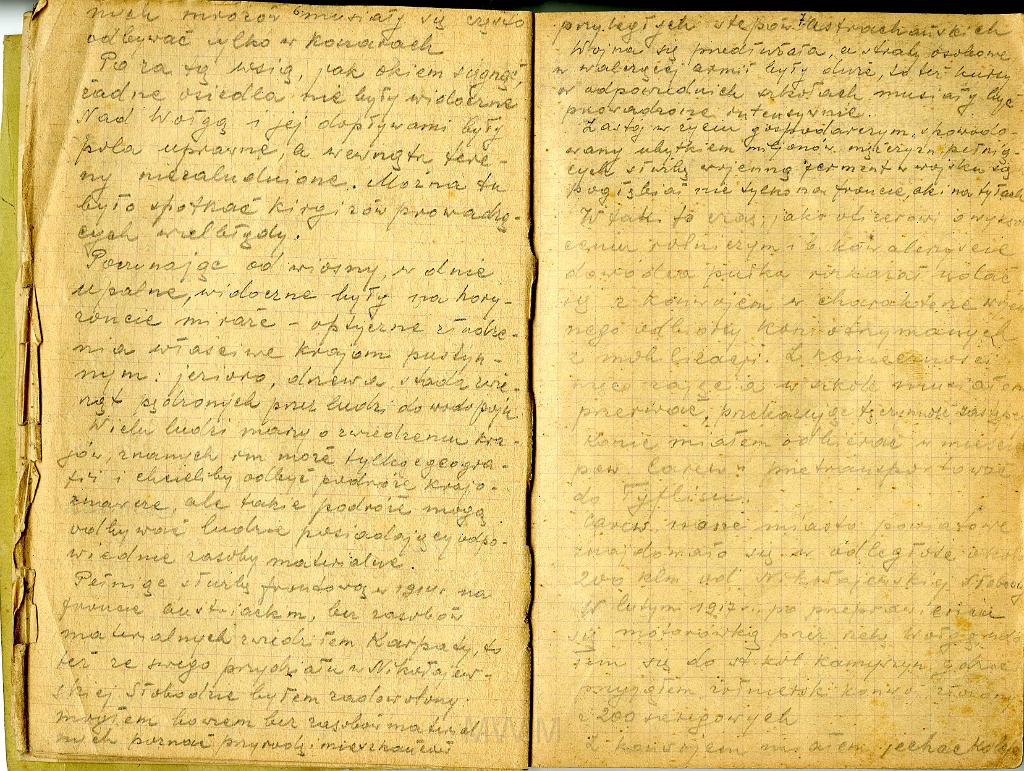 nych mrozów musiały się często
odbywać tylko w koszarach
Poza tą wsią, jak okiem sięgnąć
żadne osiedla nie były widoczne
Nad Wołgą i jej dopływami były
pola uprawne, a wewnątrz tere-
ny niezaludnione. Można tu
było spotkać kirgizów prowadzą-
cych wielbłądy.
Poczynając od wiosny, w dnie
upalne, widoczne były na hory-
zoncie miraże - optyczne złudze-
nia właściwe krajom pustyn-
nym: jeziora, drzewa, stada zwie-
rząt pędzonych przez ludzi do wodopoju.
Wielu ludzi marzy o zwiedzeniu kra-
jów, znanych im może tylko z geogra-
fii i chcieliby odbyć podróże krajo-
znawcze, ale takie podróże mogą
odbywać ludzie posiadający odpo-
wiednie zasoby materialne.
Pełniąc służbę frontową w 1914r. na
froncie austriackm, bez zasobów
materialnych zwiedziłem Karpaty, to
też ze swego przydziału w Nikołajew-
skiej Słobodzie byłem zadowolony.
mogłem bowiem bez zasobów material-
nych poznać przyrodę i mieszkańców
przyległych stepów Astrachańskich
Wojna się przedłużała, a straty osobowe
w walczącej armii były duże, to też kursy
w odpowiednich szkołach musiały być
prowadzone intensywnie.
Zastój w życiu gospodarczym, spowodo-
wany ubytkiem milionów mężczyzn pełnią-
cych służbę wojenną ferment w wojsku
pogłębiał nie tylko na froncie, ale i na tyłach
W tak to czas, jako oficerowi o wykształ-
ceniu rolniczym i b. kawalerzyście
dowódca pułku rozkazał udać
się z konwojem w charakterze
nego odbiorcy koni otrzymanych
z mobilizacji. Z konieczności
więc zajęcia w szkole musiałem
przerwać, przekazując tę czynność
Konie miałem odbierać w mieście
pow. Carew i przetransportować
do Tyflisu.
Carew, małe miasto powiatowe
znajdowało się w odległości około
200 klm od Nikołajewskiej Słobody
W lutym 1917r. po przeprawieniu
się motorówką przez rzekę Wołgę
łem się do st. kol. Kamyszyn, gdzie
przyjąłem żołnierzy konwoju
z 200 szeregowych
Z konwojem miałem jechać koleją
MWM